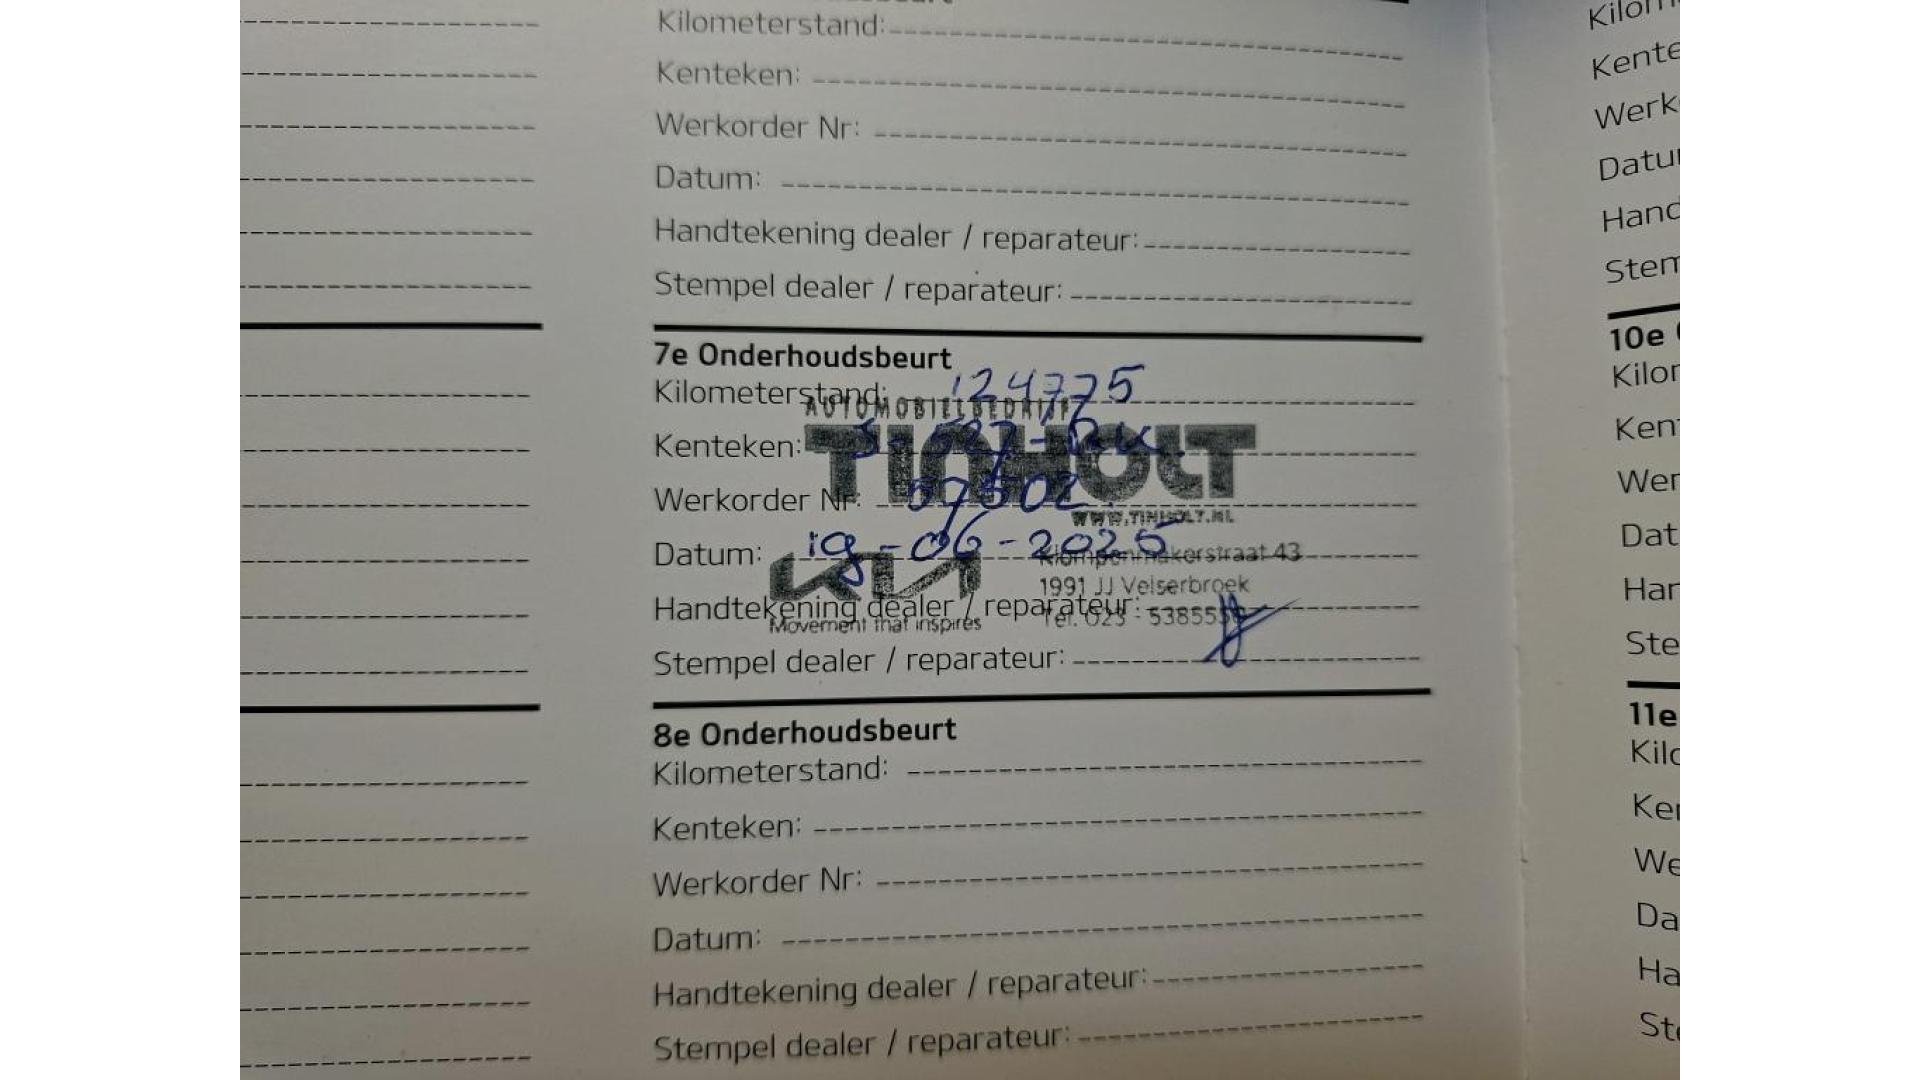 Kilometerstand:
Kenteken:
Werkorder Nr:
Datum:
Handtekening dealer / reparateur:
Stempel dealer / reparateur:
7e Onderhoudsbeurt
Kilometerstand: 124775
AUTOMOBIELBEDRIJF
Kenteken:
TINHOLT
Werkorder Nr: 57502
WWW.TINHOLT.NL
Datum: 19-06-2025
KIA
Movement that inspires
Klompenmakerstraat 43
1991 JJ Velserbroek
Tel. 023 -
Handtekening dealer / reparateur:
Stempel dealer / reparateur:
8e Onderhoudsbeurt
Kilometerstand:
Kenteken:
Werkorder Nr:
Datum:
Handtekening dealer / reparateur:
Stempel dealer / reparateur:
Kilom
Kente
Werk
Datu
Hand
Stem
10e
Kilor
Ken
Wer
Dat
Har
Ste
11e
Kilo
Ke
We
Da
Ha
Ste